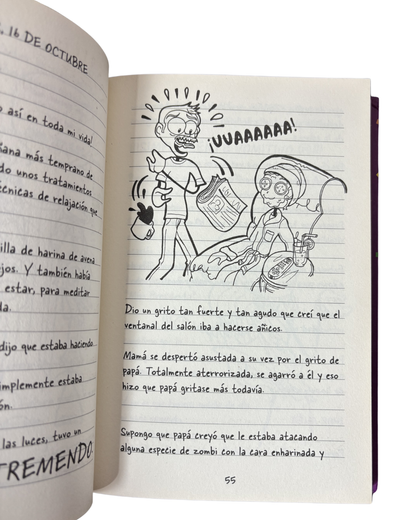 16 DE OCTUBRE
así en toda mi vida!
más temprano de
unos tratamientos
de relajación que
de harina de avena
Y también había
estar, para meditar
dijo que estaba haciendo
simplemente estaba
las luces, tuvo un
TREMENDO
¡UUAAAAAA!
Dio un grito tan fuerte y tan agudo que creí que el
ventanal del salón iba a hacerse añicos.
Mamá se despertó asustada a su vez por el grito de
papá. Totalmente aterrorizada, se agarró a él y eso
hizo que papá gritase más todavía.
Supongo que papá creyó que le estaba atacando
alguna especie de zombi con la cara enharinada y
55